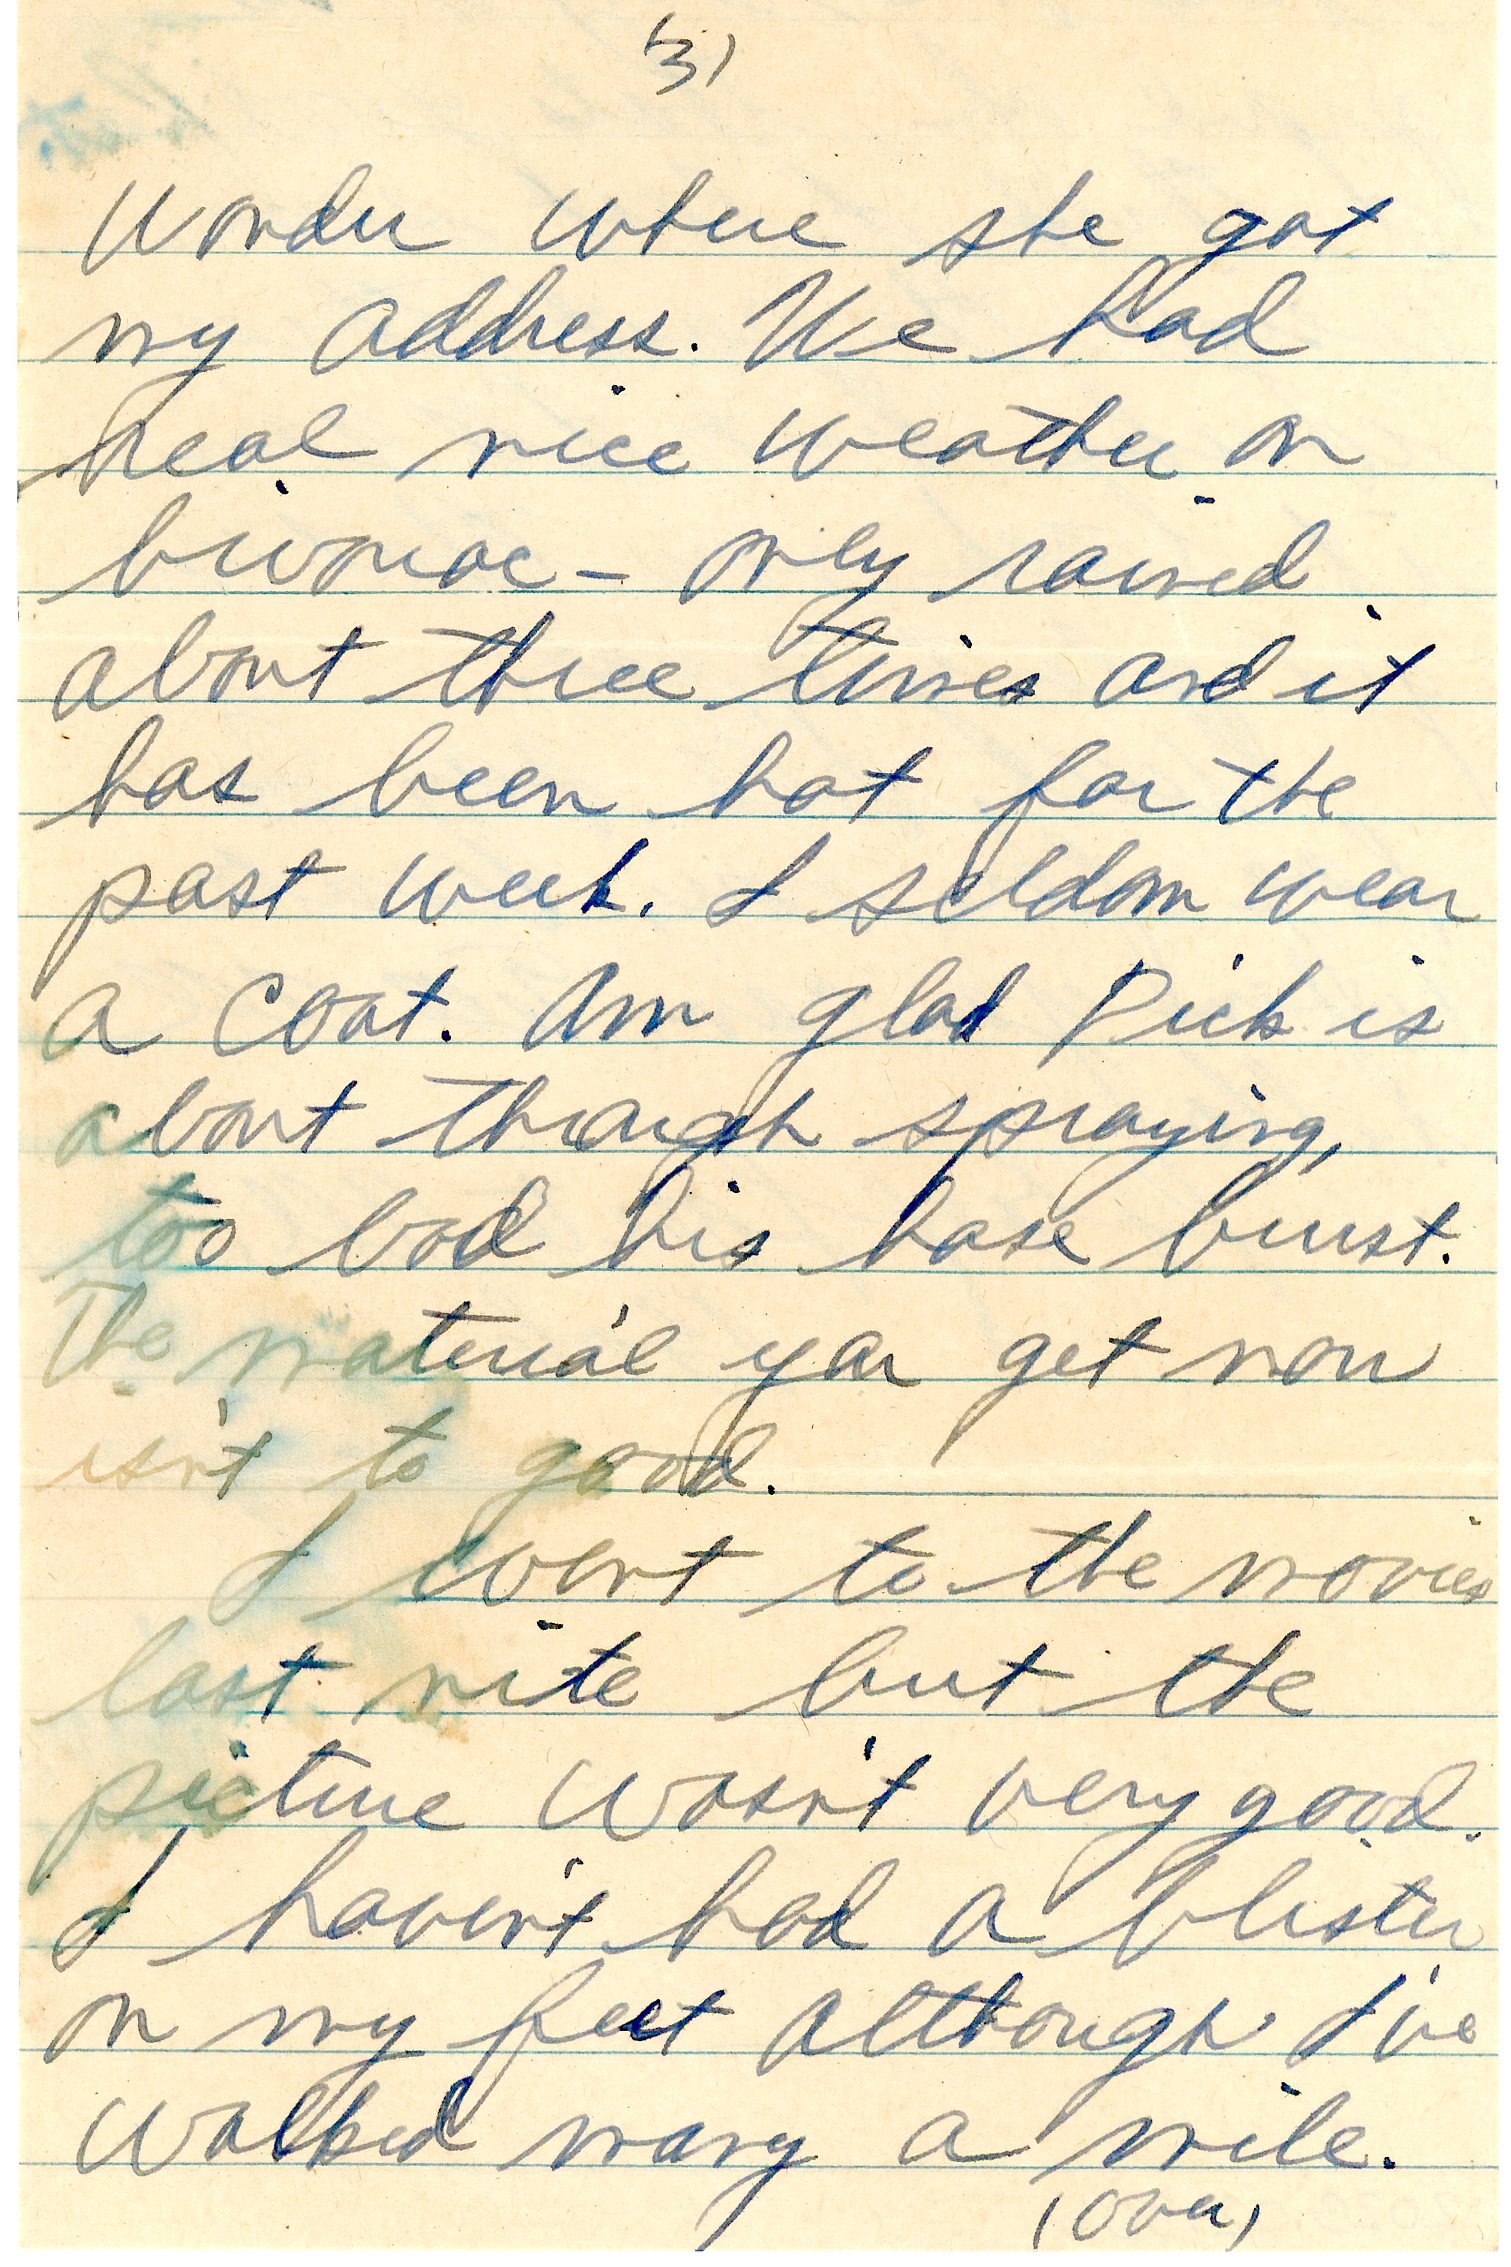 (3)
Wonder where she got
my address. We had
real nice weather on
bivouac - only rained
about three times and it
has been hot for the
past week. I seldom wear
a coat. Am glad Dick is
about through spraying,
too bad his hose burst.
The material you get now
isn't to good.
I went to the movies
last nite but the
picture wasn't very good.
I haven't had a blister
on my feet although I've
walked many a mile.
(over)